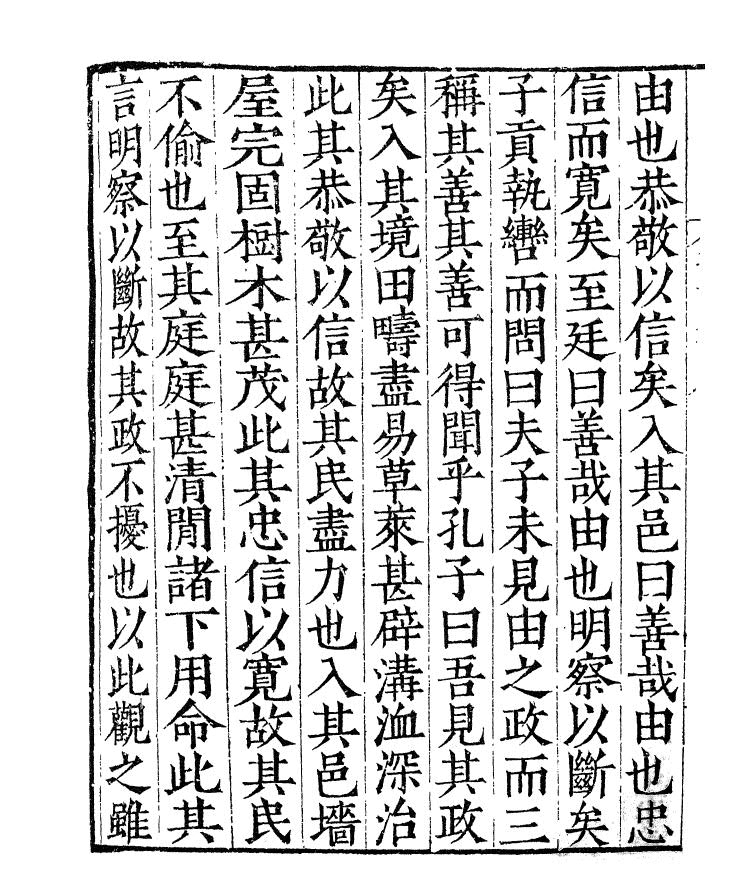 由也恭敬以信矣入其邑曰善哉由也忠
信而寛矣至廷曰善哉由也明察以斷矣
子貢執轡而問曰夫子未見由之政而三
稱其善其善可得聞乎孔子曰吾見其政
矣入其境田疇盡易草萊甚辟溝洫深治
此其恭敬以信故其民盡力也入其邑墻
屋完固樹木甚茂此其忠信以寛故其民
不偷也至其庭庭甚清閒諸下用命此其
言明察以斷故其政不擾也以此觀之雖